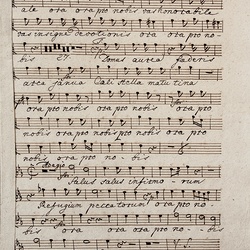 ale ora ora pro nobis vas honorabile
vas insigne devotionis ora ora pro no-
bis Domus aurea faederis
arca janua Caeli stella matutina
ora pro nobis ora pro nobis
nobis ora pro nobis ora pro
nobis ora pro no-bis
Adagio
Salus salus infirmo-rum
Refugium peccatorum ora pro no-
bis ora ora pro no-
bis ora pro no-bis